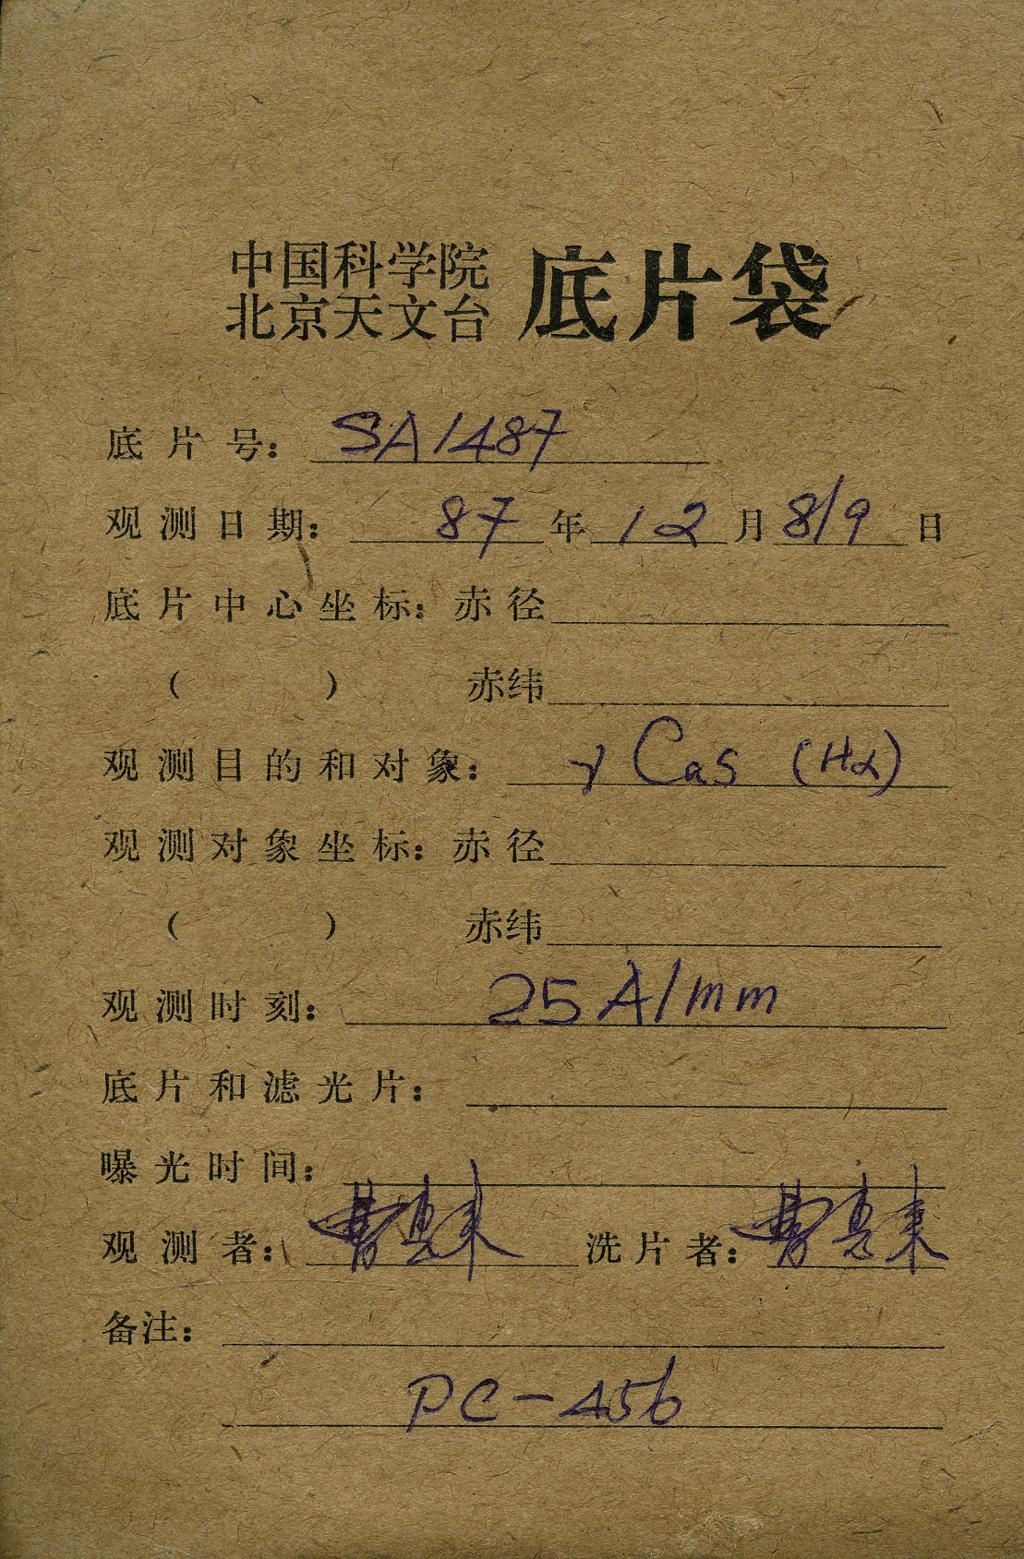 中国科学院
北京天文台 底片袋
底片号: SA1487
观测日期: 87 年 12 月 8/9 日
底片中心坐标: 赤径
( ) 赤纬
观测目的和对象: γ Cas (Hα)
观测对象坐标: 赤径
( ) 赤纬
观测时刻: 25A/mm
底片和滤光片:
曝光时间:
观测者: 曹惠来 洗片者: 曹惠来
备注:
PC-456